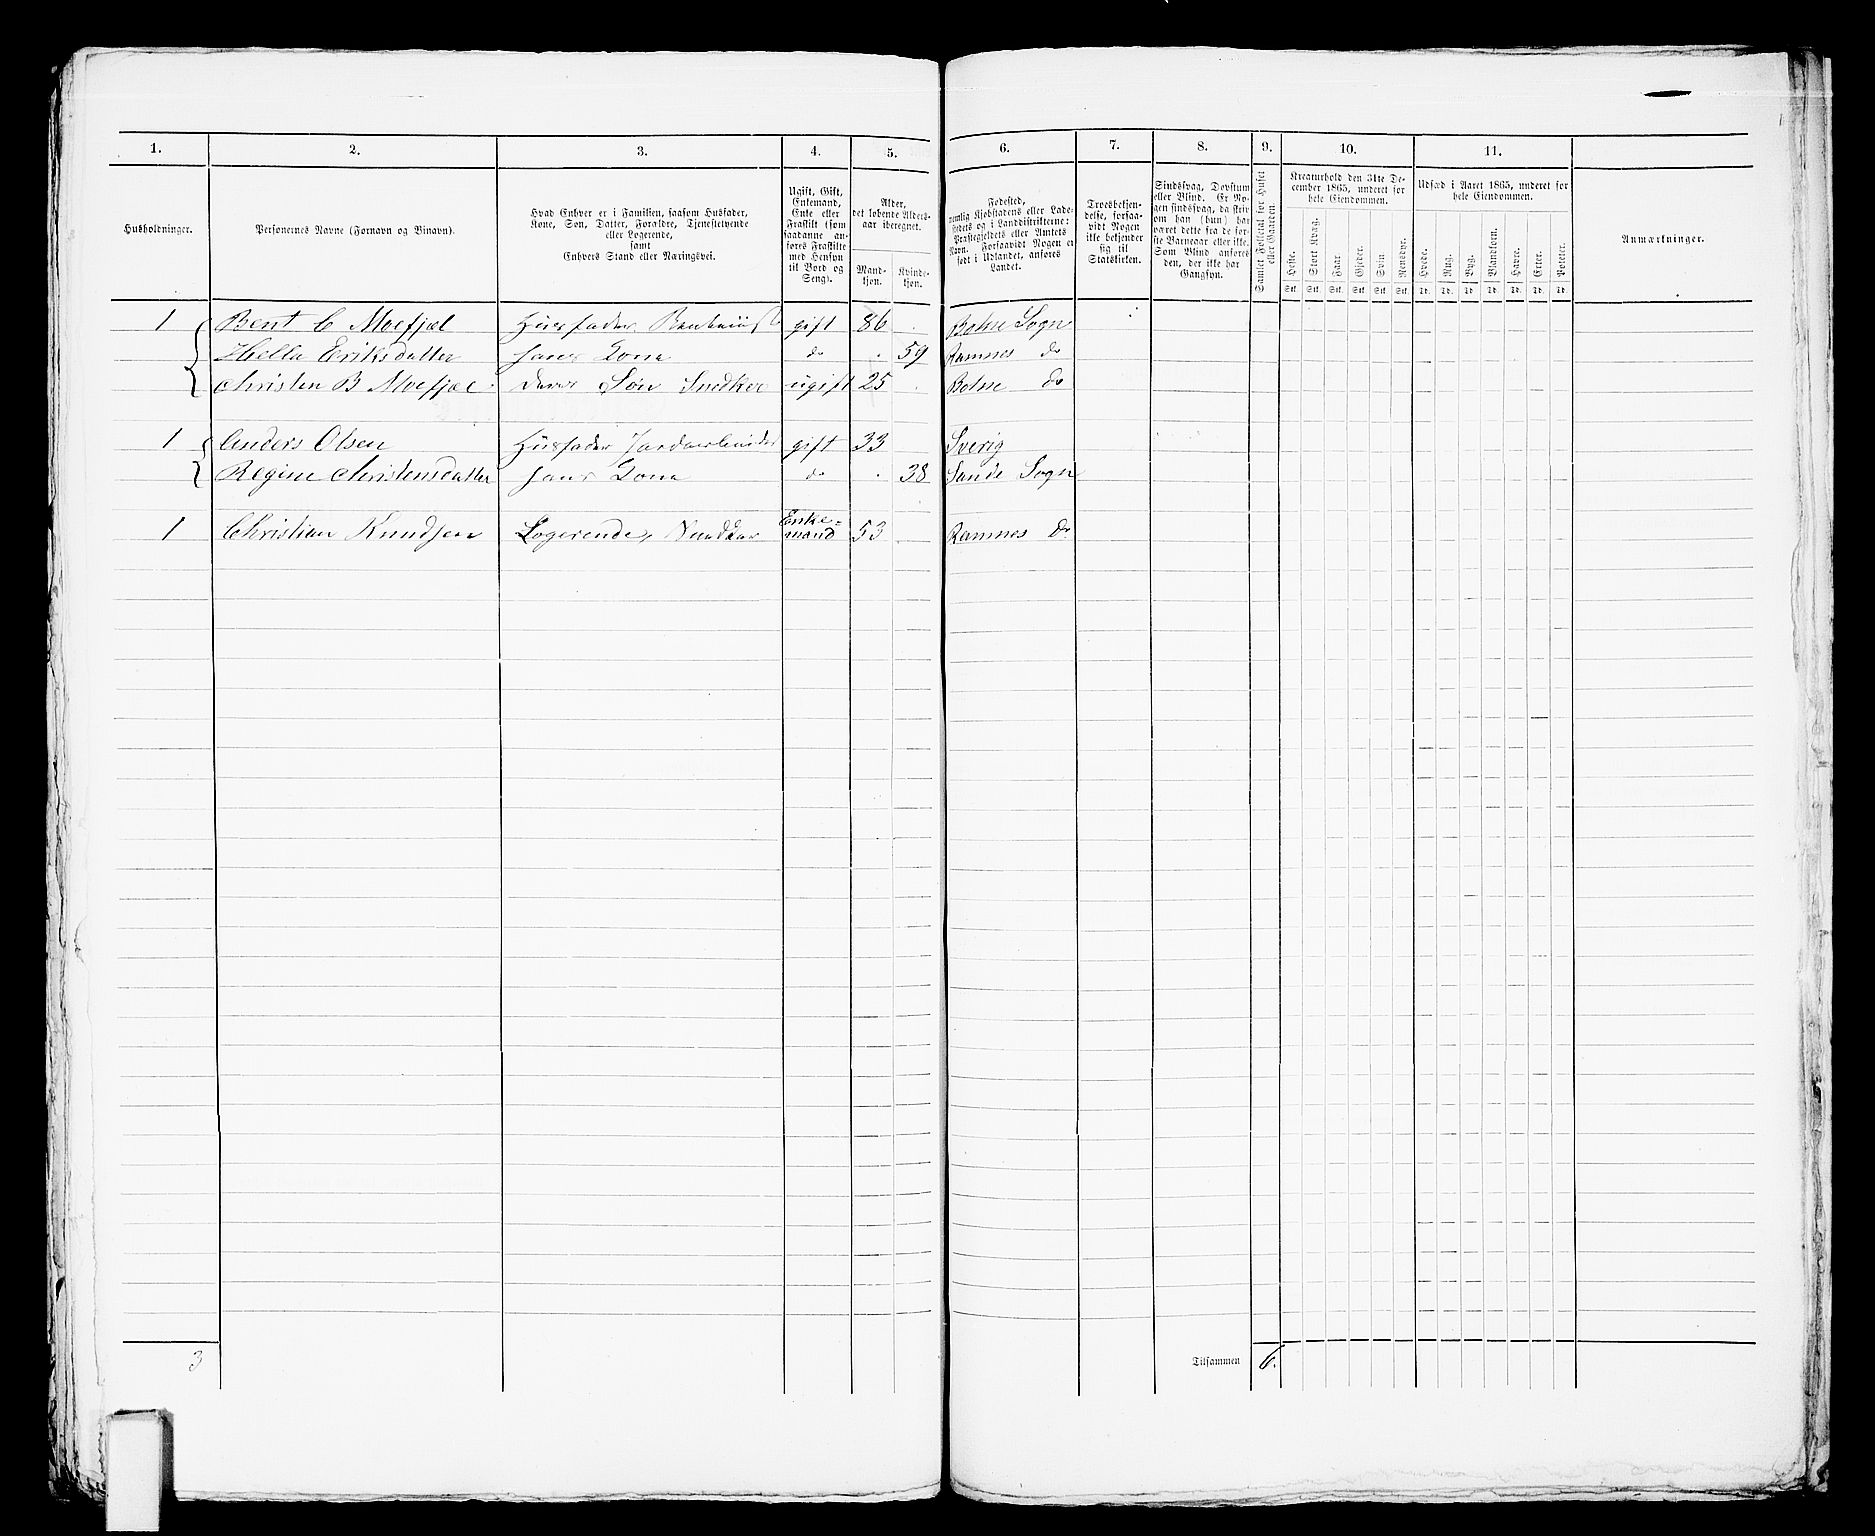 1. 2. 3. 4. 5. 6. 7. 8. 9. 10. 11.
Husholdninger.
Personernes Navne (Fornavn og Binavn).
Hvad Enhver er i Familien, saasom Husfader,
Kone, Søn, Datter, Forældre, Tjenestetyende
eller Logerende,
samt
Enhvers Stand eller Næringsvei.
Ugift, Gift,
Enkemand,
Enke eller
Fraskilt (som
saadanne an-
føres Fraskilte
med Hensyn
til Bord og
Seng).
Alder,
det løbende Alders-
aar iberegnet.
Mand-
kjøn.
Kvinde-
kjøn.
Fødested,
nemlig Kjøbstadens eller Lade-
stedets og i Landdistrikterne:
Præstegjeldets eller Amtets
Navn. Forsaavidt Nogen er
født i Udlandet, anføres
Landet.
Troesbekjen-
delse, forsaa-
vidt Nogen
ikke bekjender
sig til
Statskirken.
Sindssvag, Døvstum
eller Blind. Er No-
gen sindssvag, da skriv
om han (hun) har
været dette fra de før-
ste Barneaar eller ikke.
Som Blind anføres
den, der ikke har
Gangsyn.
Samlet Folketal for Huset
eller Gaarden.
Kreaturhold den 31te De-
cember 1865, underet for
hele Eiendommen.
Heste. Stort Kvæg. Faar. Gjeder. Svin. Rensdyr.
Stk. Stk. Stk. Stk. Stk. Stk.
Udsæd i Aaret 1865, underet for
hele Eiendommen.
Hvede. Rug. Byg. Blandkorn. Havre. Erter. Poteter.
Td. Td. Td. Td. Td. Td. Td.
Anmærkninger.
1 Bent C Moefjæl Husfader gift 86 Botne Sogn
Eriksdatter hans Kone do 59 Ramnes do
Christen B Moefjæl deres Søn Snedker ugift 25 Botne do
1 Anders Olsen Husfader Jordarbeider gift 33 Sverig
Regine Christensdatter hans Kone do 38 Sande Sogn
1 Christian Knudsen Logerende, Enke-
mand 53 Ramnes do
3 Tilsammen 6.